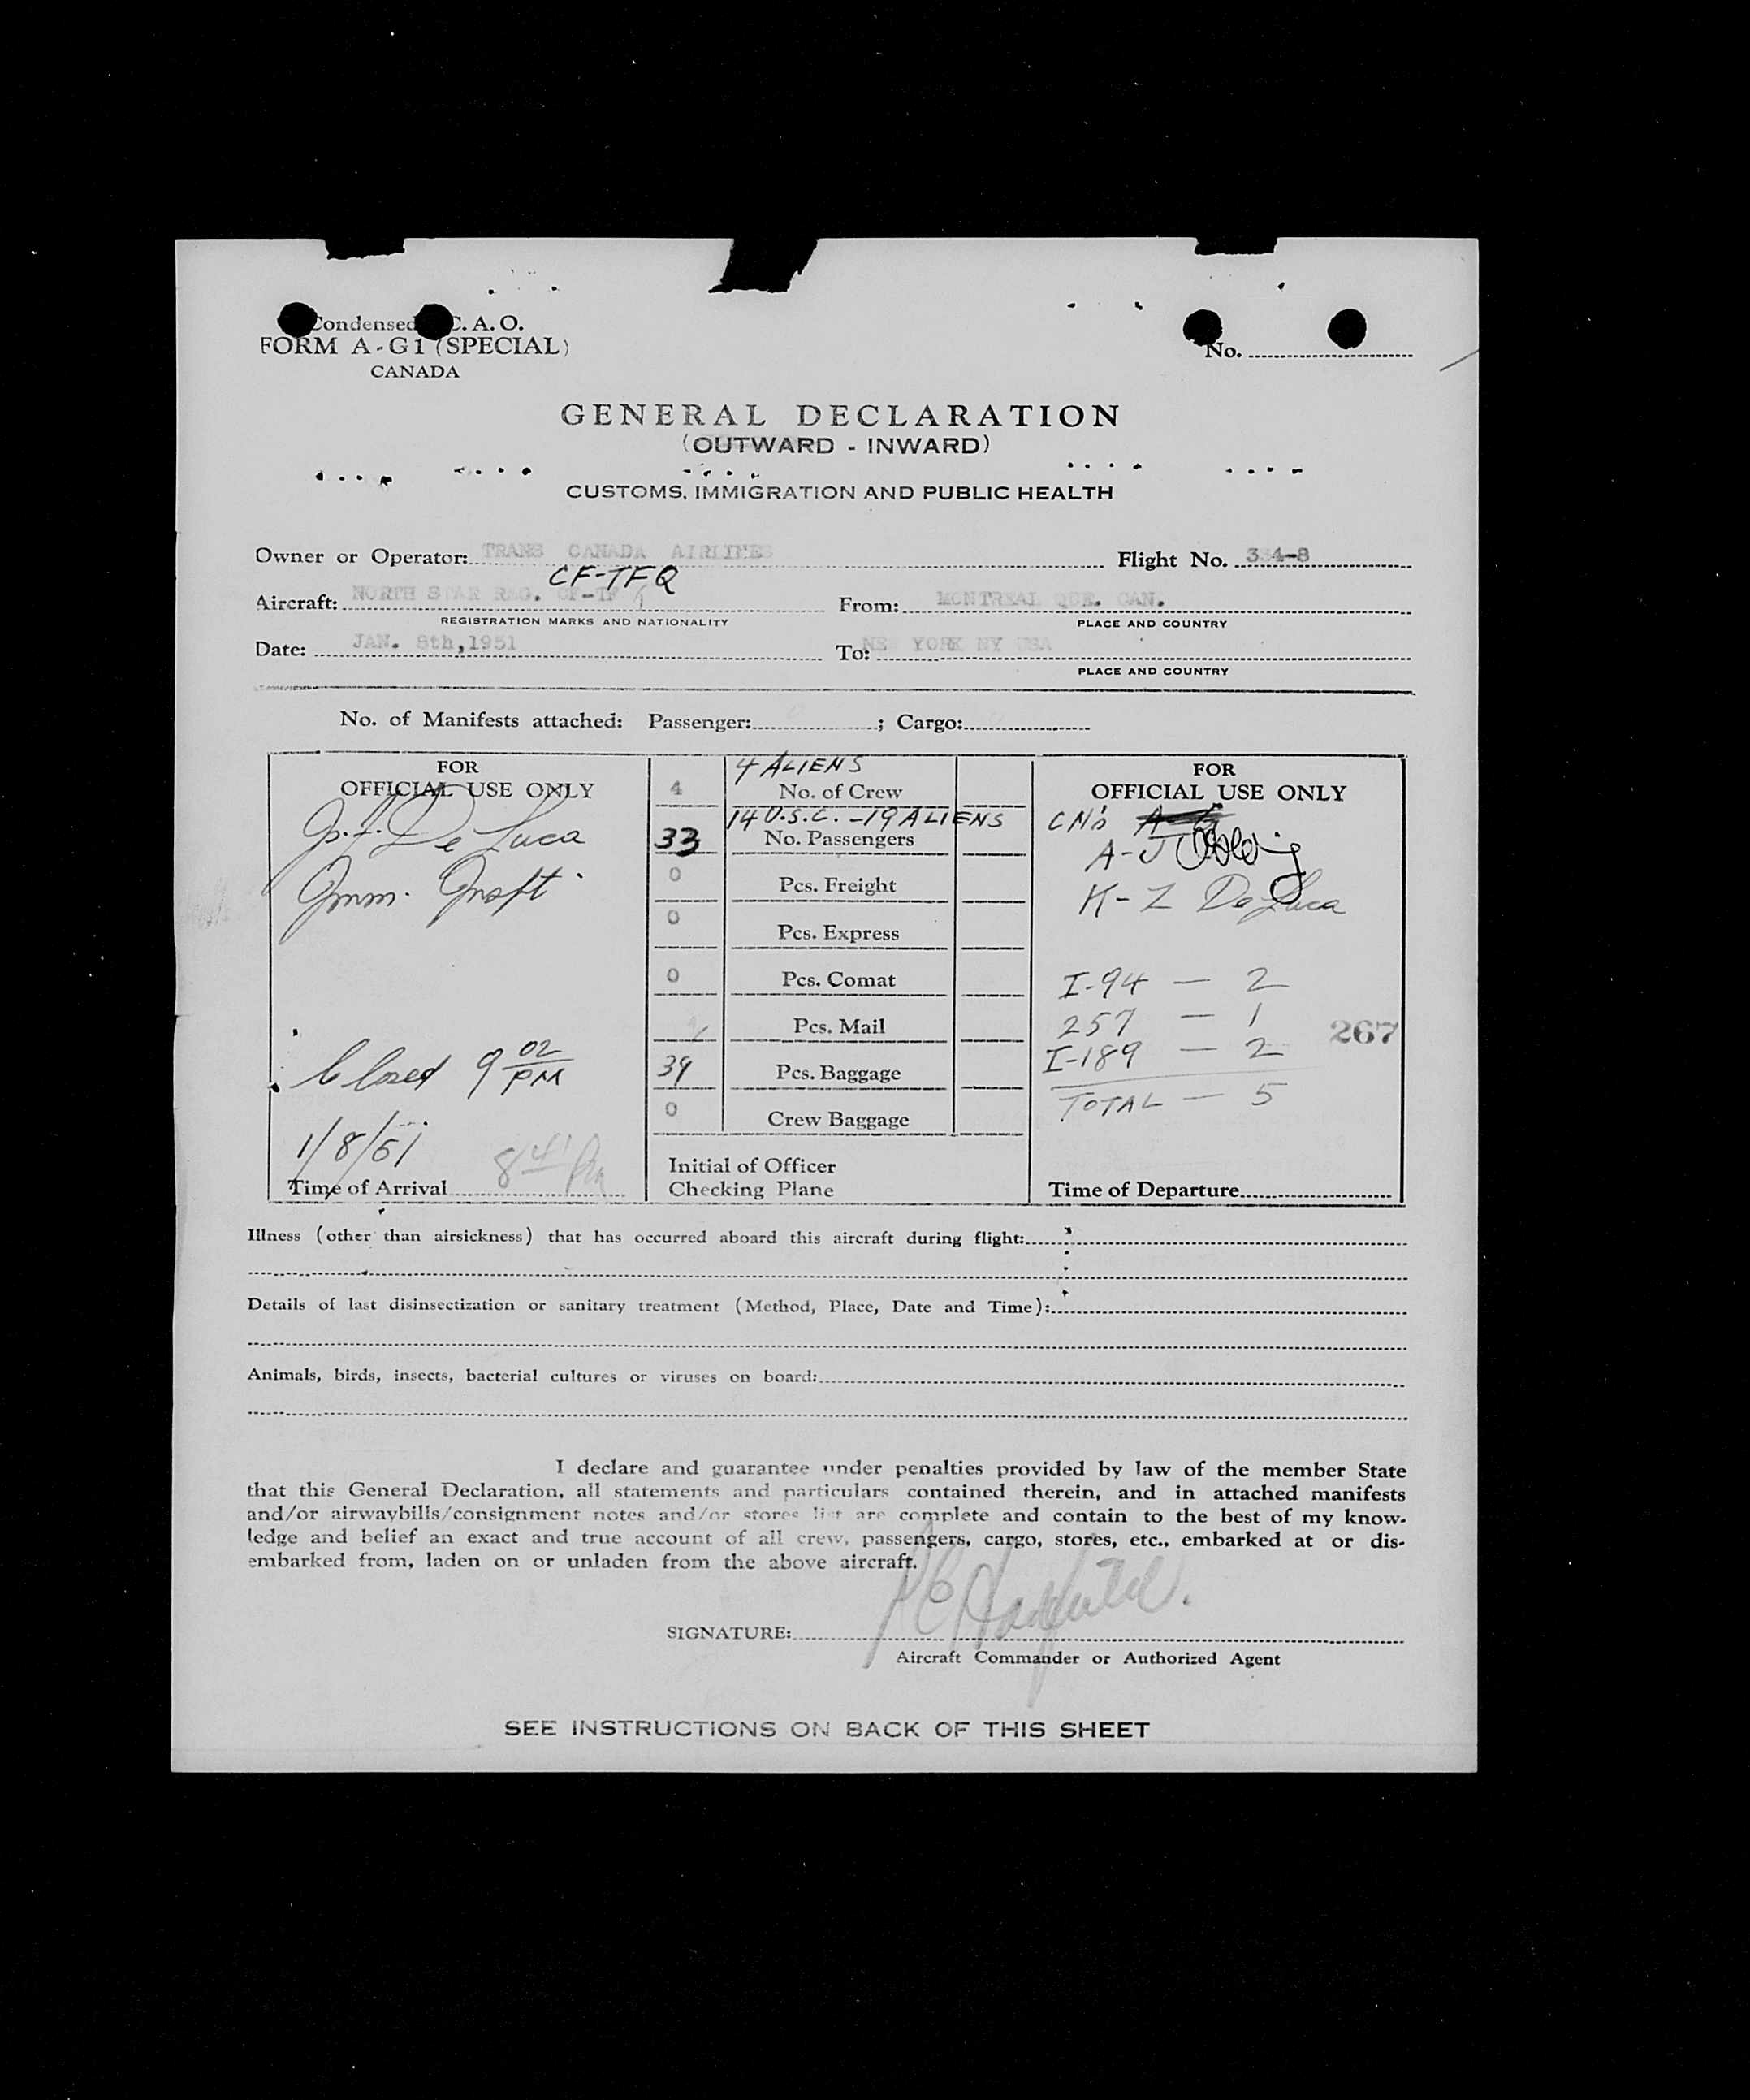 Condensed C. A. O.
FORM A-G1 (SPECIAL)
CANADA
No.
GENERAL DECLARATION
(OUTWARD - INWARD)
CUSTOMS, IMMIGRATION AND PUBLIC HEALTH
Owner or Operator: TRANS CANADA AIRLINES Flight No. 334-8
CF-TFQ
Aircraft: NORTH STAR REG. CF-TF From: MONTREAL QUE. CAN.
REGISTRATION MARKS AND NATIONALITY PLACE AND COUNTRY
Date: JAN. 8th,1951 To: NEW YORK NY USA
PLACE AND COUNTRY
No. of Manifests attached: Passenger: ; Cargo:
FOR
OFFICIAL USE ONLY
De Luca
Imm. Inspt.
Closed 9 02 PM
1/8/51
Time of Arrival 8 41 Pm
4 ALIENS
4 No. of Crew
14 U.S.C. - 19 ALIENS
33 No. Passengers
0 Pcs. Freight
0 Pcs. Express
0 Pcs. Comat
Pcs. Mail
39 Pcs. Baggage
0 Crew Baggage
Initial of Officer
Checking Plane
FOR
OFFICIAL USE ONLY
A-J
K-Z De Luca
I-94 — 2
257 — 1
267
I-189 — 2
TOTAL — 5
Time of Departure
Illness (other than airsickness) that has occurred aboard this aircraft during flight:
Details of last disinsectization or sanitary treatment (Method, Place, Date and Time):
Animals, birds, insects, bacterial cultures or viruses on board:
I declare and guarantee under penalties provided by law of the member State
that this General Declaration, all statements and particulars contained therein, and in attached manifests
and/or airwaybills/consignment notes and/or stores list are complete and contain to the best of my know-
ledge and belief an exact and true account of all crew, passengers, cargo, stores, etc., embarked at or dis-
embarked from, laden on or unladen from the above aircraft.
SIGNATURE:
Aircraft Commander or Authorized Agent
SEE INSTRUCTIONS ON BACK OF THIS SHEET